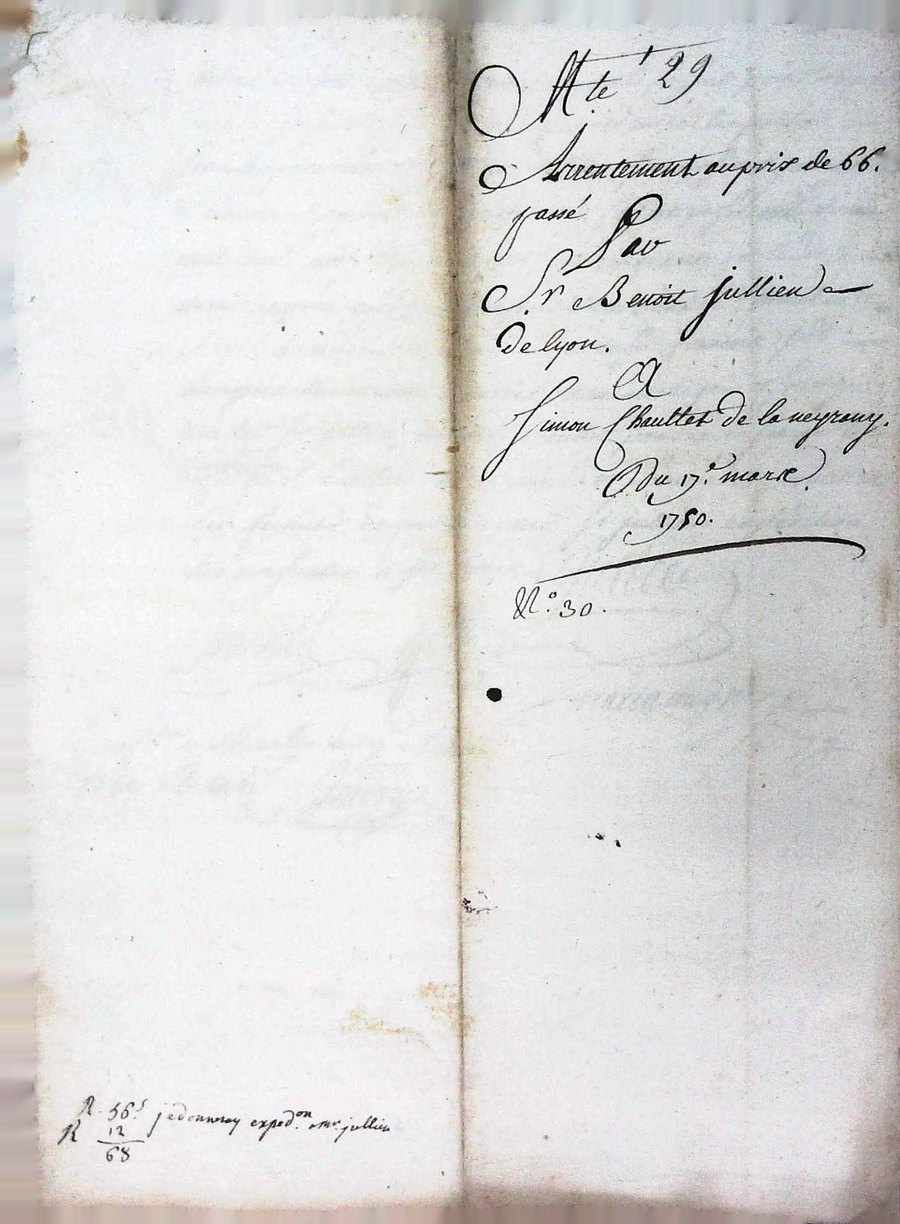 Mte 29
Arrentement au prix de 66.
passé
Par
Sr. Benoit jullien
de lyon.
A
Simon Chaultet de la neyrany.
Du 17e. mars
1750.
N.o 30.
R. 56s jedonneray exped.on a mr jullien
R 12
68